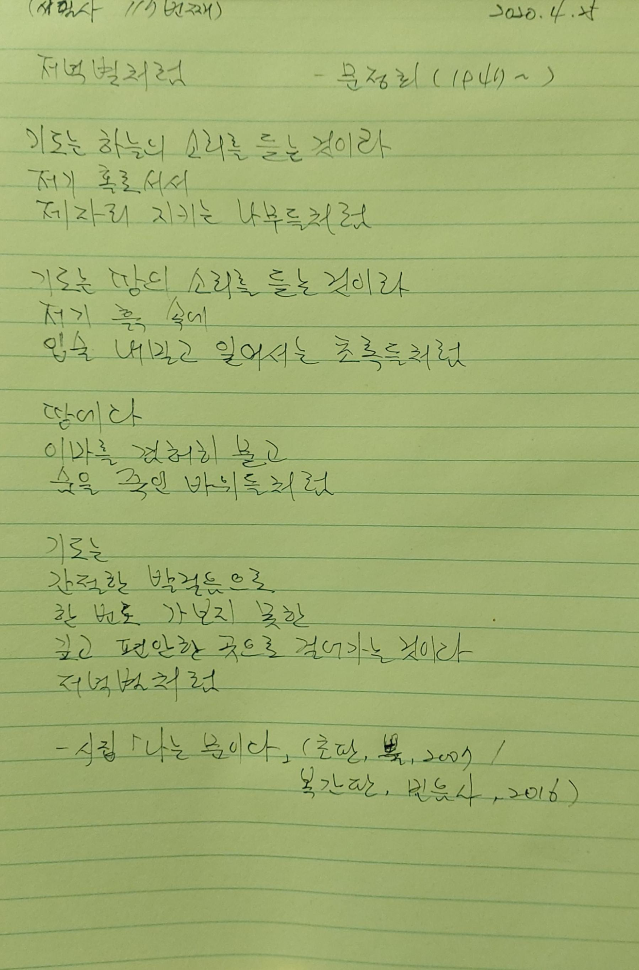 (시밀사 117번째) 2020.4.25
저녁별처럼 - 문정희(1947~)
기도는 하늘의 소리를 듣는 것이라
저기 홀로 서서
제자리 지키는 나무들처럼
기도는 땅의 소리를 듣는 것이라
저기 흙 속에
입술 내밀고 일어서는 초록들처럼
땅에다
이마를 겸허히 묻고
숨을 죽인 바위들처럼
기도는
간절한 발걸음으로
한 번도 가보지 못한
깊고 편안한 곳으로 걸어가는 것이라
저녁별처럼
- 시집 「나는 문이다」 (초판, 뿔, 2007 /
복간판, 민음사, 2016)